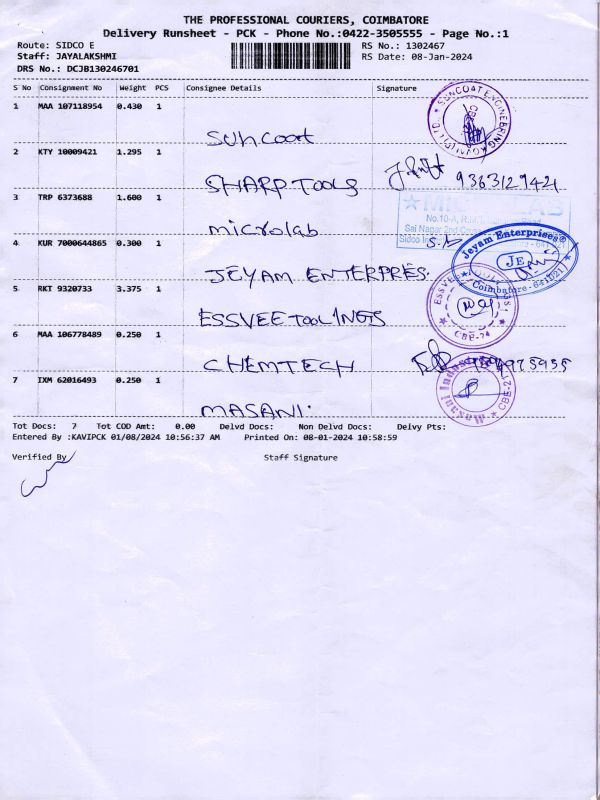 THE PROFESSIONAL COURIERS, COIMBATORE
Delivery Runsheet - PCK - Phone No.:0422-3505555 - Page No.:1
Route: SIDCO E
RS No.: 1302467
Staff: JAYALAKSHMI
RS Date: 08-Jan-2024
DRS No.: DCJB130246701
S No Consignment No Weight PCS Consignee Details Signature
1 MAA 107118954 0.430 1
Suncoat
SUNCOAT ENGINEERING
2 KTY 10009421 1.295 1
SHARP TOOLS
9363129421
3 TRP 6373688 1.600 1
microlab
No.10-A,
Sai Nagar 2nd
4 KUR 7000644865 0.300 1
JEYAM ENTERPRES.
Jeyam Enterprises®
JE
Coimbatore - 641021
5 RKT 9320733 3.375 1
ESSVEE TOOLINGS
ESSVEE TOOLINGS
CBE-24
6 MAA 106778489 0.250 1
CHEMTECH
7 IXM 62016493 0.250 1
MASANI.
Masani Industries
Tot Docs: 7 Tot COD Amt: 0.00 Delvd Docs: Non Delvd Docs: Delvy Pts:
Entered By :KAVIPCK 01/08/2024 10:56:37 AM Printed On: 08-01-2024 10:58:59
Verified By Staff Signature